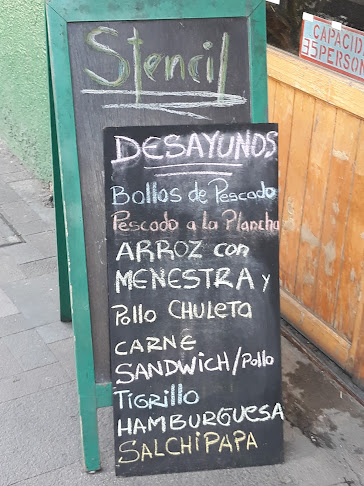 Stencil
CAPACID
35 PERSON
DESAYUNOS
Bollos de Pescado
Pescado a la Plancha
ARROZ con
MENESTRA y
Pollo CHULETA
CARNE
SANDWICH/Pollo
Tigrillo
HAMBURGUESA
SALCHIPAPA